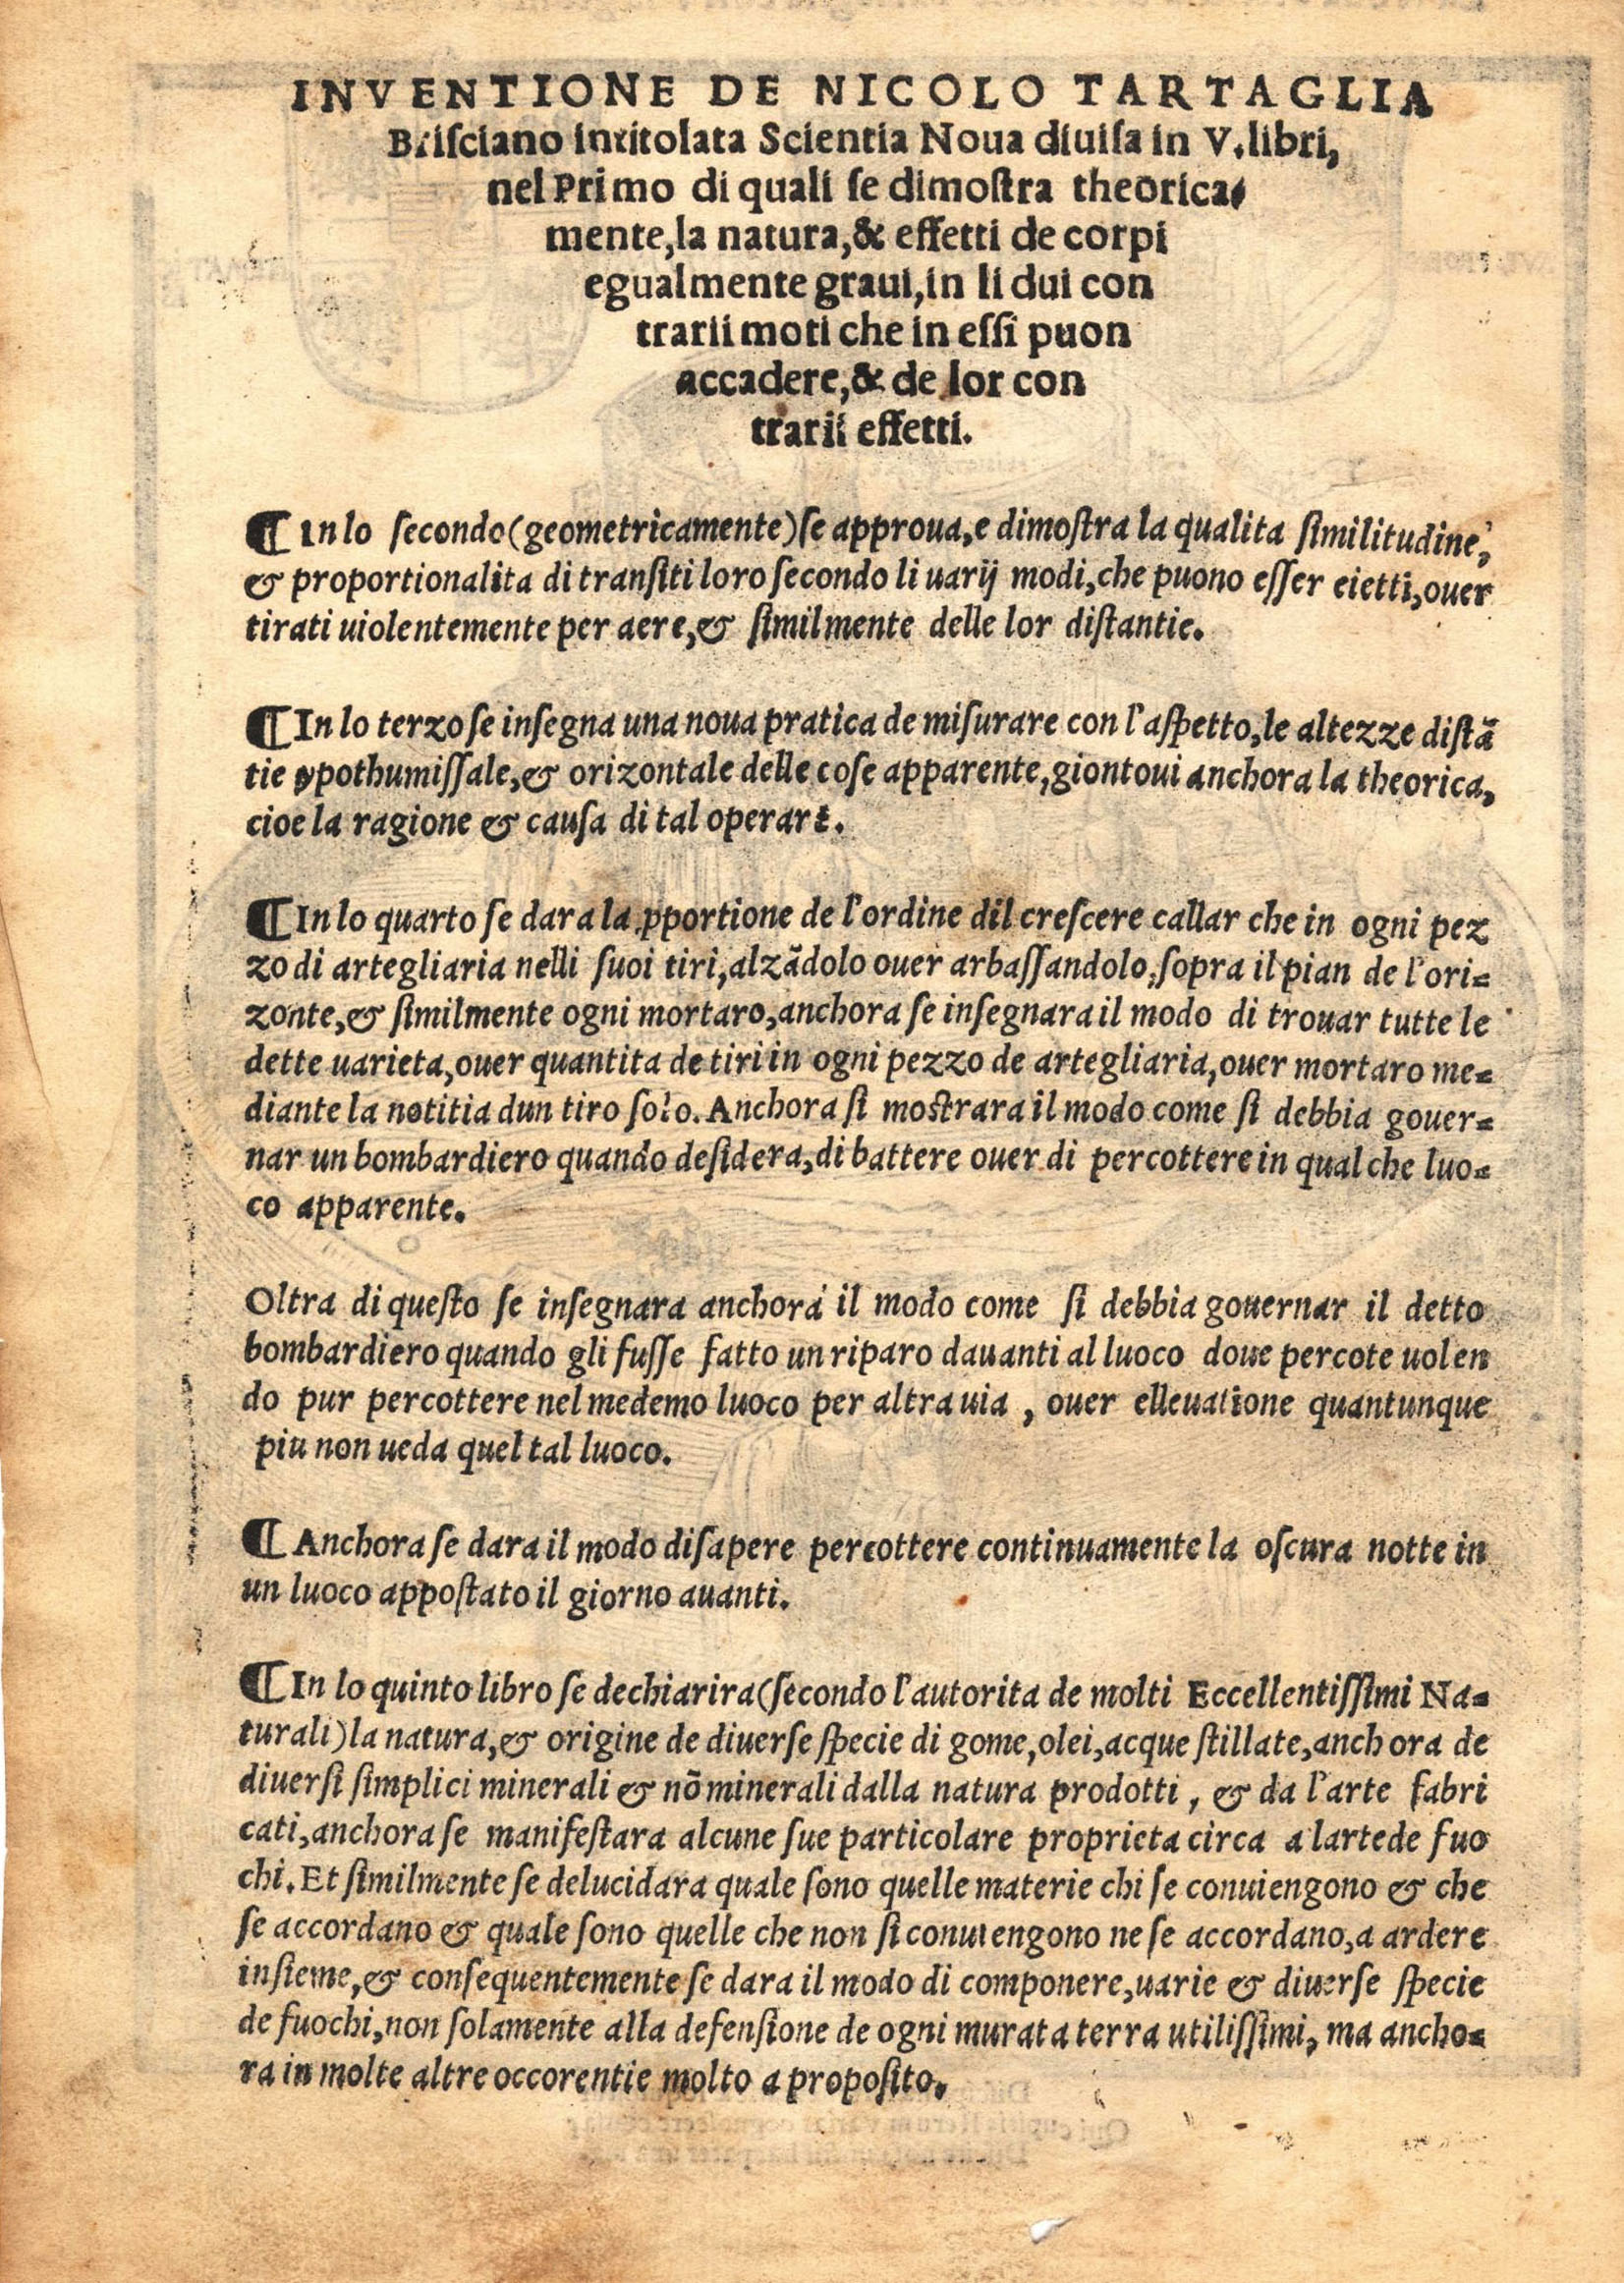 INVENTIONE DE NICOLO TARTAGLIA
Brisciano intitolata Scientia Noua diuisa in V. libri,
nel Primo di quali se dimostra theorica,
mente, la natura, & effetti de corpi
egualmente graui, in li dui con
trarii moti che in essi puon
accadere, & de lor con
trarii effetti.
¶ In lo secondo (geometricamente) se approua, e dimostra la qualita similitudine,
& proportionalita di transiti loro secondo li uarij modi, che puono esser eietti, ouer
tirati uiolentemente per aere, & similmente delle lor distantie.
¶ In lo terzo se insegna una noua pratica de misurare con l'aspetto, le altezze distã
tie ypothumissale, & orizontale delle cose apparente, giontoui anchora la theorica,
cioe la ragione & causa di tal operare.
¶ In lo quarto se dara la ꝓportione de l'ordine dil crescere callar che in ogni pez
zo di artegliaria nelli suoi tiri, alzãdolo ouer arbassandolo, sopra il pian de l'ori=
zonte, & similmente ogni mortaro, anchora se insegnara il modo di trouar tutte le
dette uarieta, ouer quantita de tiri in ogni pezzo de artegliaria, ouer mortaro me=
diante la notitia dun tiro solo. Anchora si mostrara il modo come si debbia gouer=
nar un bombardiero quando desidera, di battere ouer di percottere in qual che luo=
co apparente.
Oltra di questo se insegnara anchora il modo come si debbia gouernar il detto
bombardiero quando gli fusse fatto un riparo dauanti al luoco doue percote uolen
do pur percottere nel medemo luoco per altra uia, ouer elleuatione quantunque
piu non ueda quel tal luoco.
¶ Anchora se dara il modo di sapere percottere continuamente la oscura notte in
un luoco appostato il giorno auanti.
¶ In lo quinto libro se dechiarira (secondo l'autorita de molti Eccellentissimi Na=
turali) la natura, & origine de diuerse specie di gome, olei, acque stillate, anchora de
diuersi simplici minerali & nõ minerali dalla natura prodotti, & da l'arte fabri
cati, anchora se manifestara alcune sue particolare proprieta circa a larte de fuo
chi. Et similmente se delucidara quale sono quelle materie chi se conuiengono & che
se accordano & quale sono quelle che non si conuiengono ne se accordano, a ardere
insieme, & consequentemente se dara il modo di componere, uarie & diuerse specie
de fuochi, non solamente alla defensione de ogni murata terra utilissimi, ma ancho=
ra in molte altre occorentie molto a proposito.